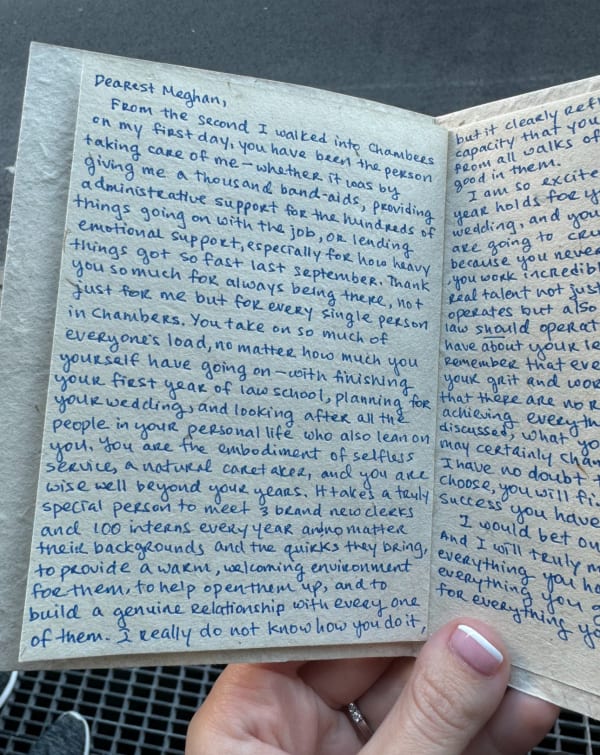 Dearest Meghan,
From the second I walked into Chambers
on my first day, you have been the person
taking care of me – whether it was by
giving me a thousand band-aids, providing
administrative support for the hundreds of
things going on with the job, or lending
emotional support, especially for how heavy
things got so fast last September. Thank
you so much for always being there, not
just for me but for every single person
in Chambers. You take on so much of
everyone's load, no matter how much you
yourself have going on – with finishing
your first year of law school, planning for
your wedding, and looking after all the
people in your personal life who also lean on
you. You are the embodiment of selfless
service, a natural caretaker, and you are
wise well beyond your years. It takes a truly
special person to meet 3 brand new clerks
and 100 interns every year and no matter
their backgrounds and the quirks they bring,
to provide a warm, welcoming environment
for them, to help open them up, and to
build a genuine relationship with every one
of them. I really do not know how you do it,
but it clearly refl
capacity that you
from all walks of
good in them.
I am so excite
year holds for y
wedding, and you
are going to cru
because you never
, you work incredibl
real talent not just
operates but also
law should operat
have about your le
remember that eve
your grit and wor
that there are no r
achieving everyth
discussed, what yo
may certainly chan
I have no doubt t
choose, you will fi
success you have
I would bet on
And I will truly m
everything you ha
everything you g
for everything yo